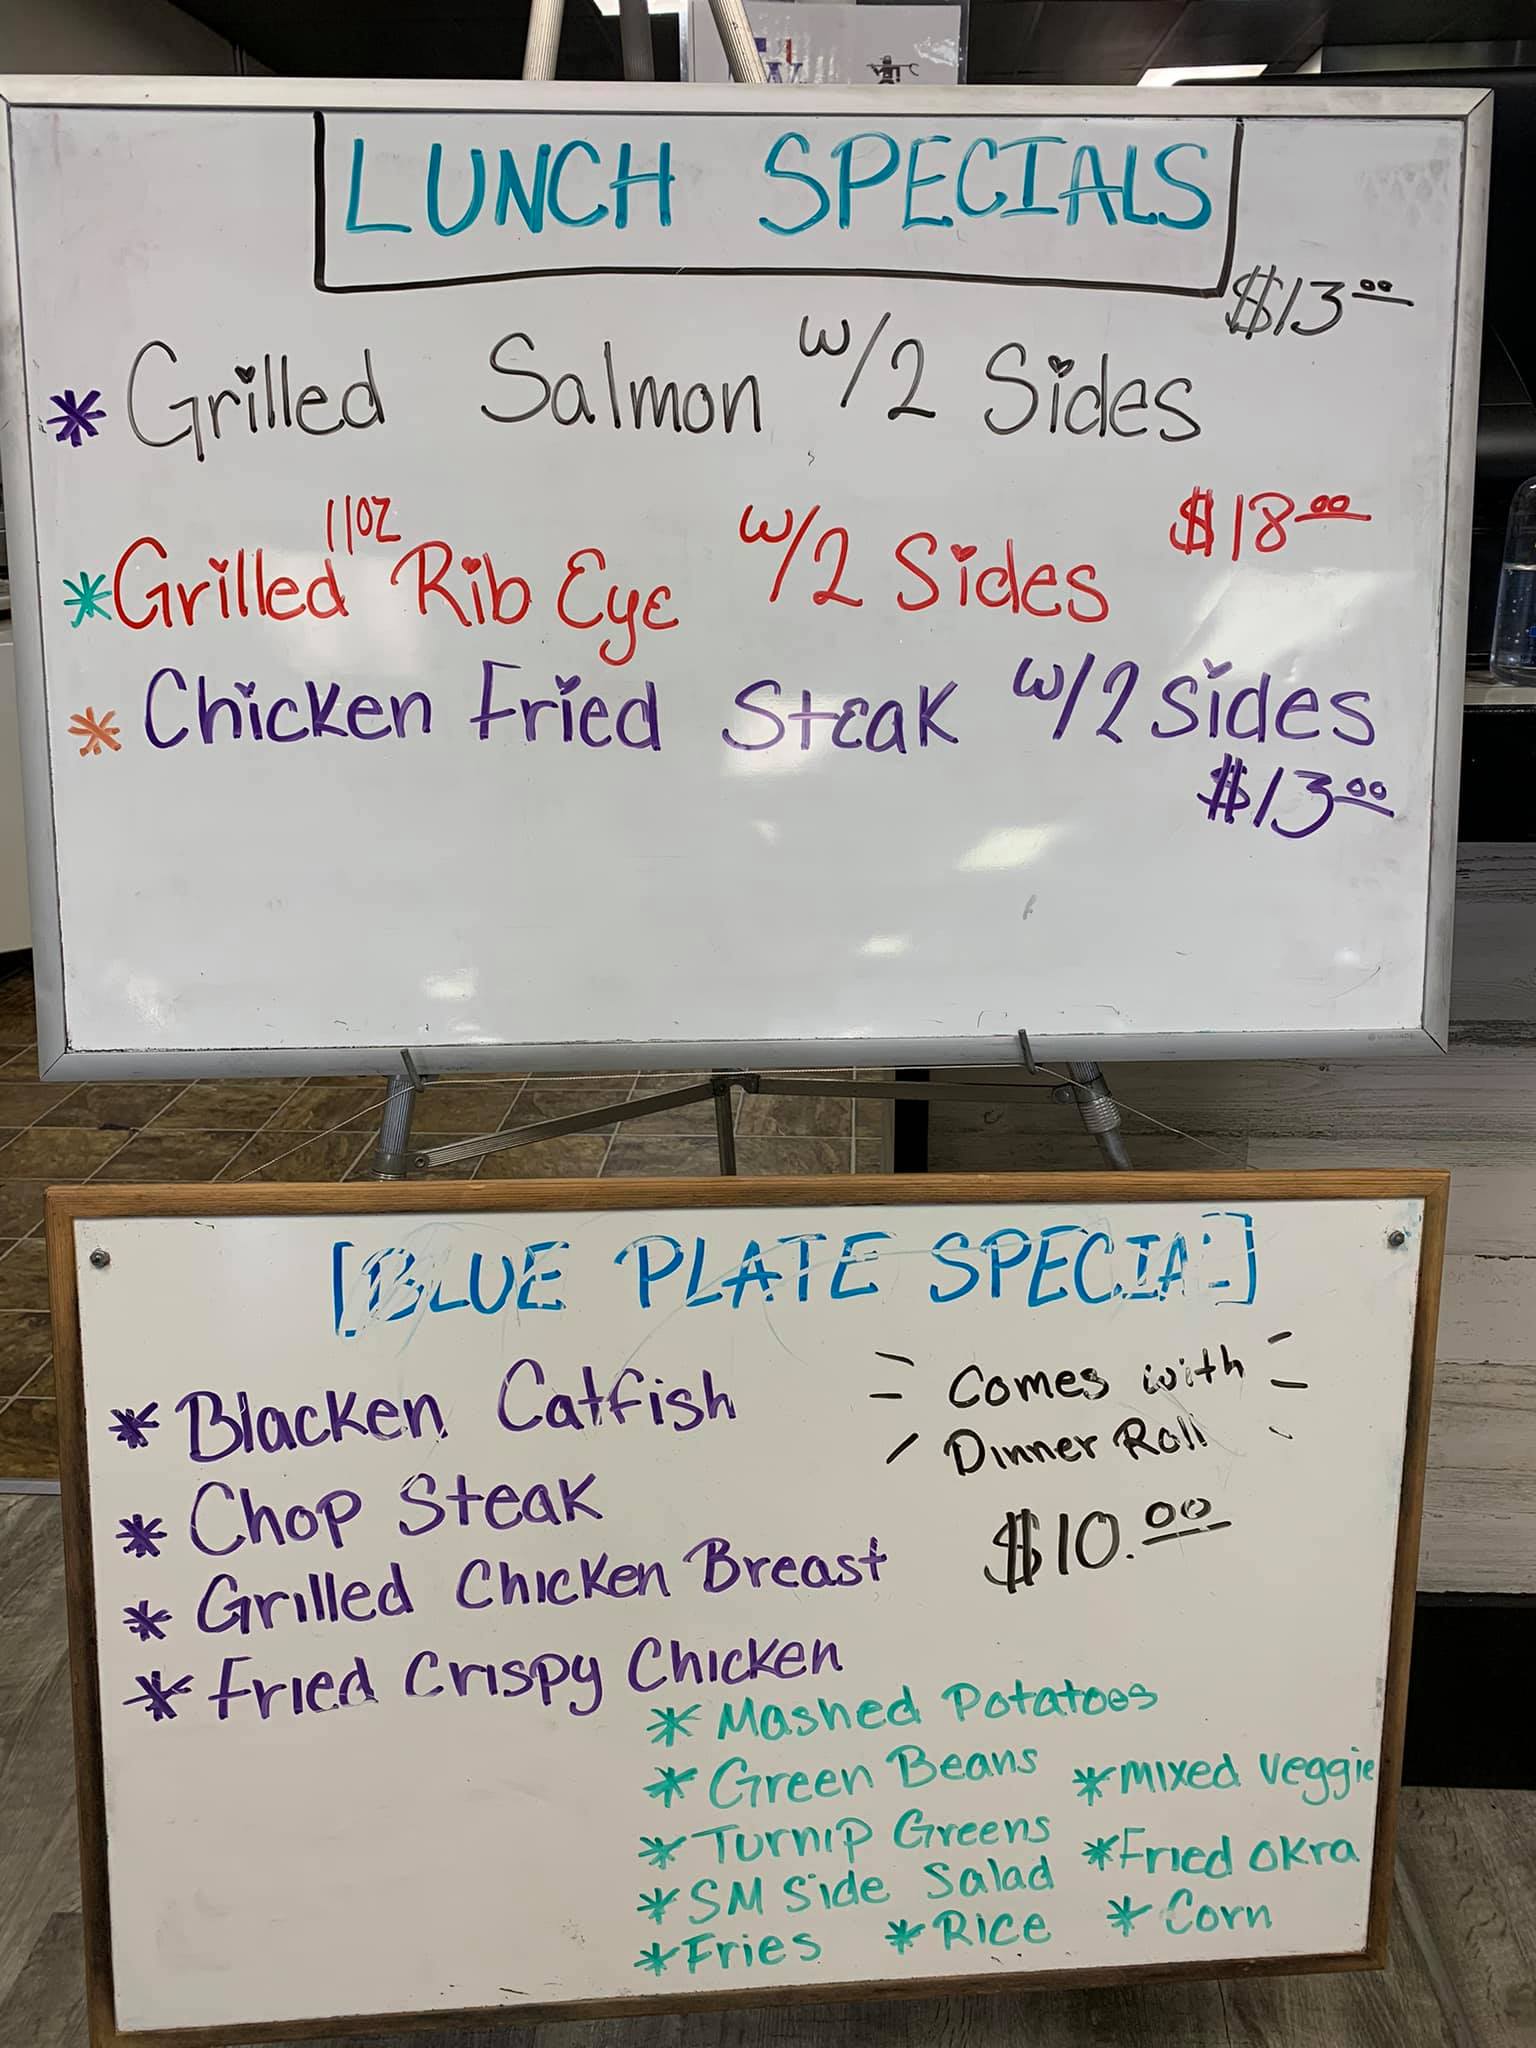 LUNCH SPECIALS
$13.00
* Grilled Salmon w/2 Sides
11oz
* Grilled Rib Eye w/2 Sides $18.00
* Chicken Fried Steak w/2 Sides
$13.00
[BLUE PLATE SPECIAL]
* Blacken Catfish
Comes with
Dinner Roll
* Chop Steak
$10.00
* Grilled Chicken Breast
* Fried Crispy Chicken
* Mashed Potatoes
* Green Beans * Mixed Veggie
* Turnip Greens * Fried Okra
* SM Side Salad
* Fries * Rice * Corn